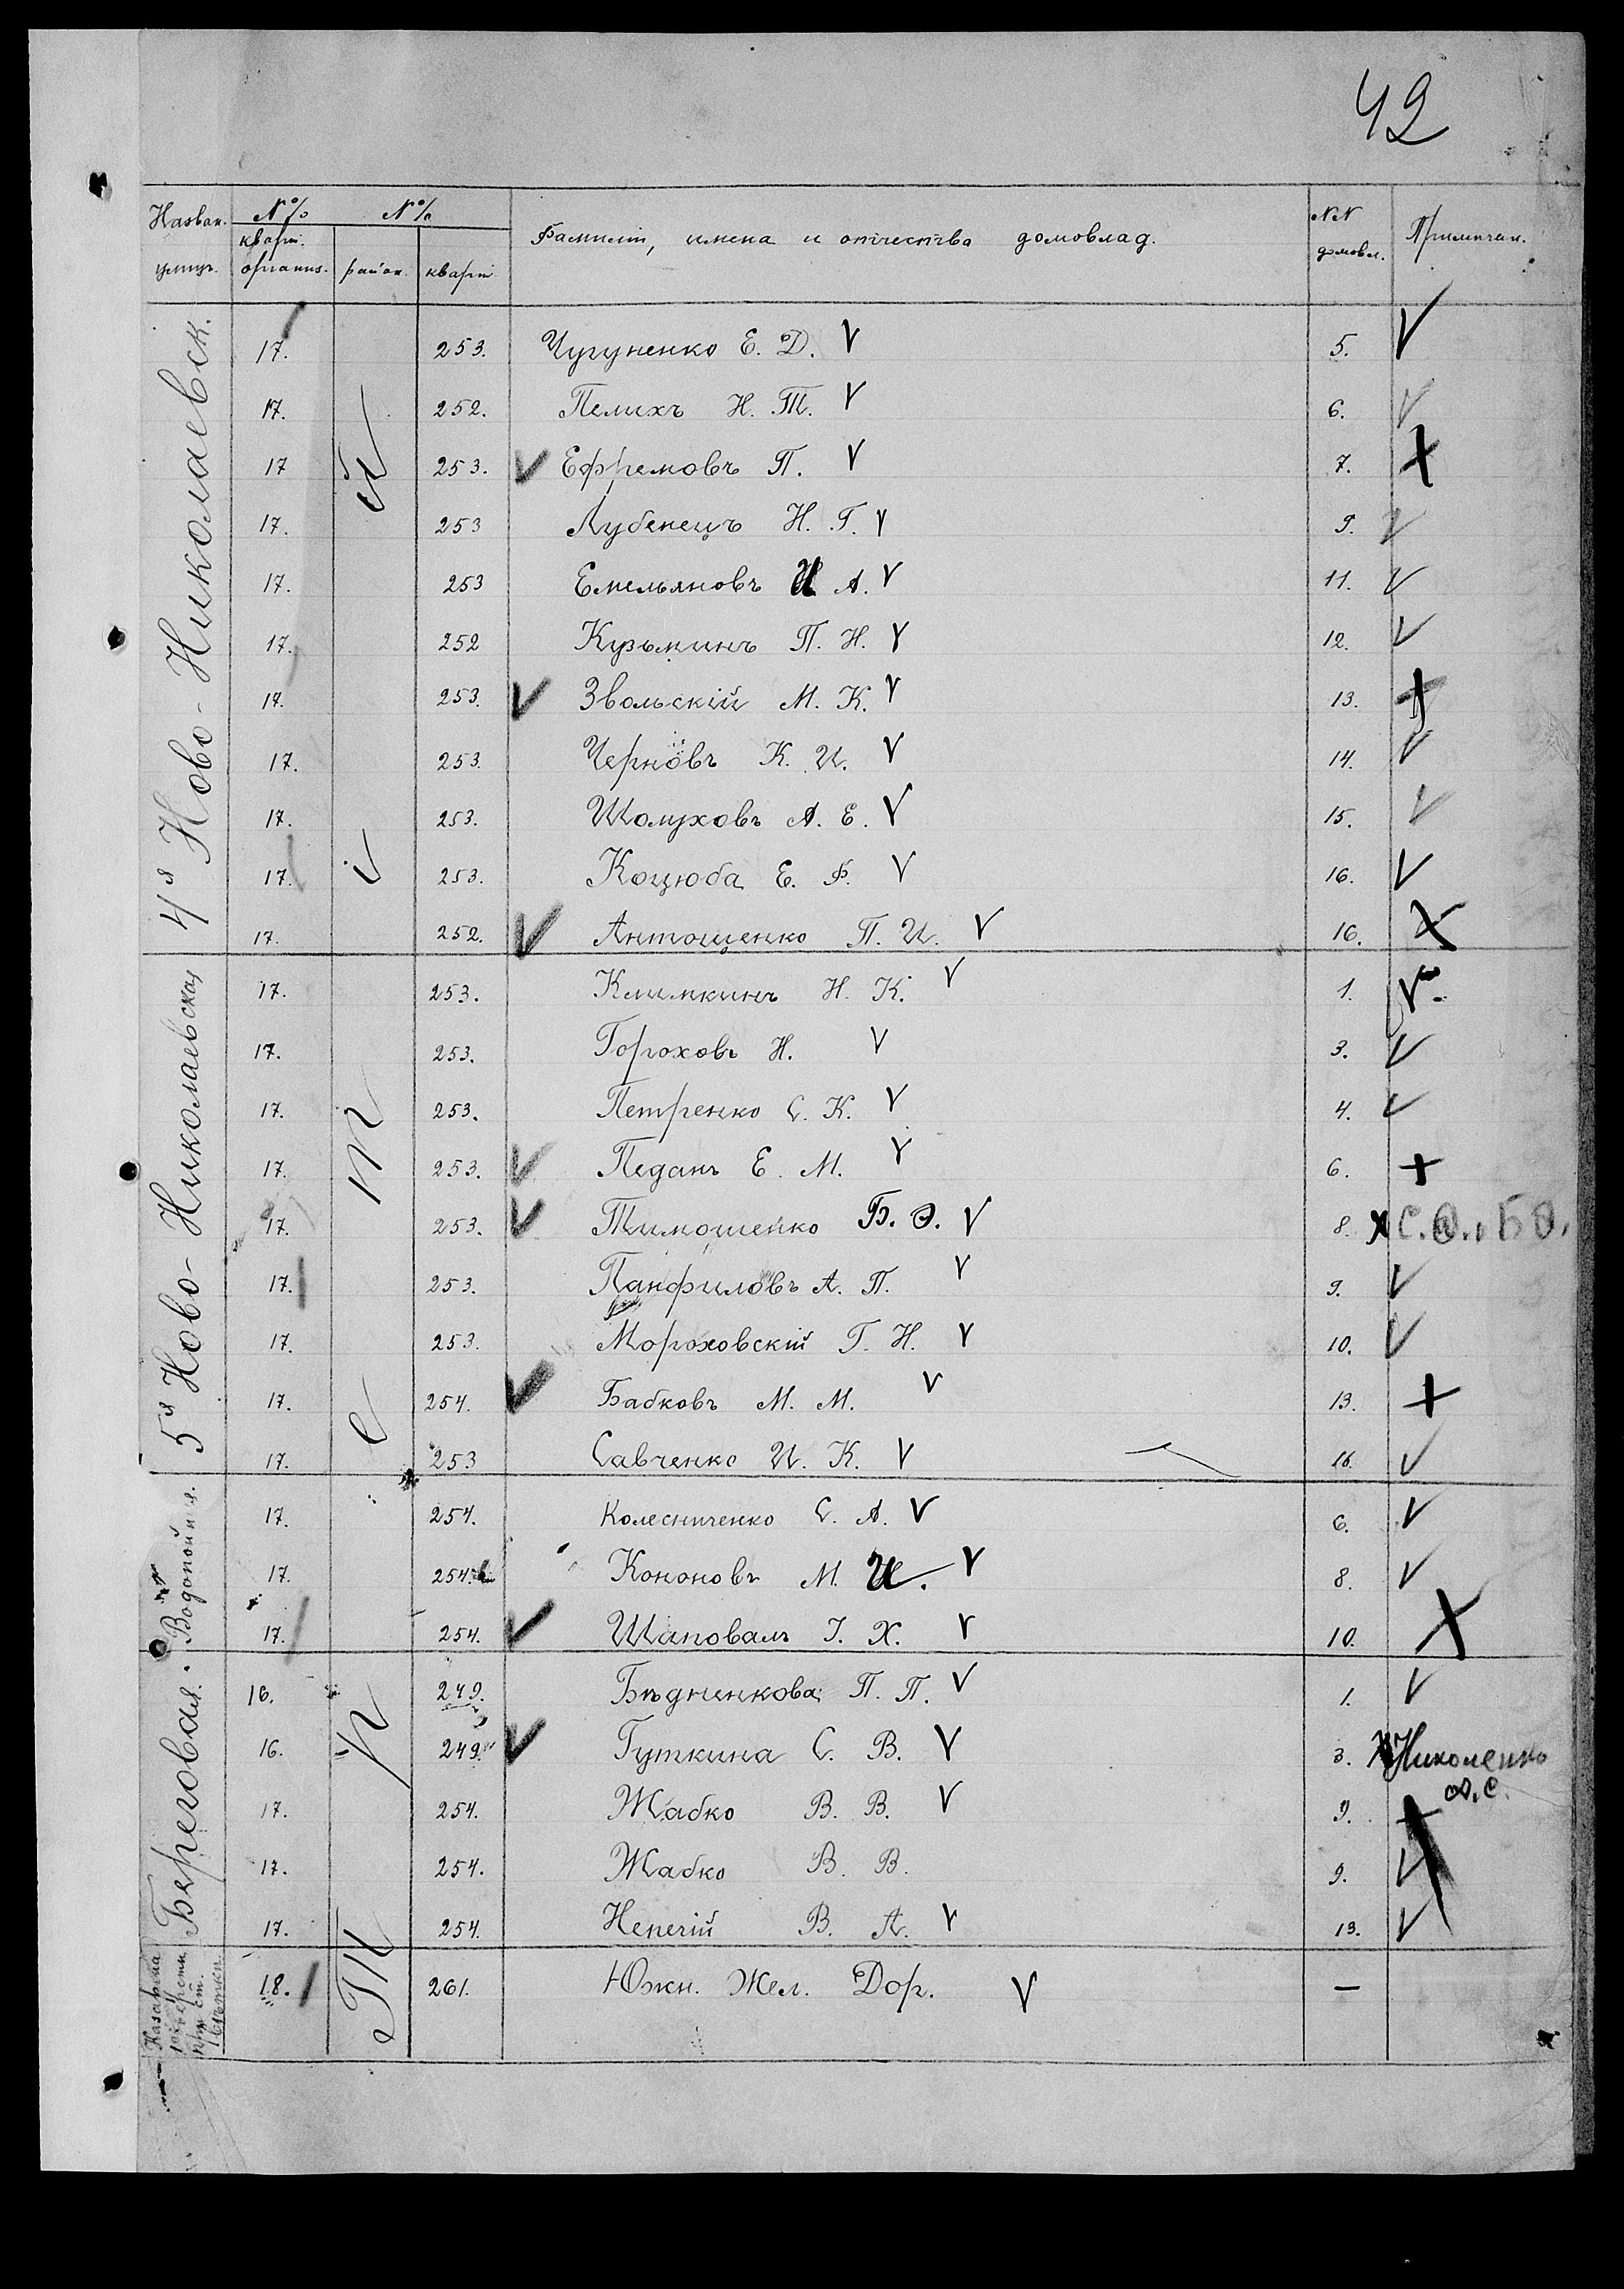 42
Назван. улицъ. №% кварт. организ. №% район. кварт Фамиліи, имена и отчества домовлад. №№ домовл. Примѣчан.
4я Ново-Николаевск.
17. 253. Чугуненко Е. Д. V 5. V
17. 252. Пелихъ Н. Т. V 6. V
17 253. V Ефремовъ П. V 7. X
17. 253 Лубенецъ Н. Г. V 9. V
17. 253 Емельяновъ И А. V 11. V
17. 252 Кузьминъ П. Н. V 12. V
17. 253. V Звольскій М. К. V 13. X
17. 253. Черновъ К. И. V 14. V
17. 253. Шолуховъ А. Е. V 15. V
17. 253. Коцюба Е. Ф. V 16. V
17. 252. V Антощенко П. И. V 16. X
5я Ново-Николаевская
17. 253. Климкинъ Н. К. V 1. V
17. 253. Гороховъ Н. V 3. V
17. 253. Петренко С. К. V 4. V
17. 253. V Педанъ Е. М. V 6. +
17. 253. V Тимошенко Б. Э. V 8. X С. Ѳ. Б Э.
17. 253. Панфиловъ А. П. V 9. V
17. 253. Мороховскій Г. Н. V 10. V
17. 254. V Бабковъ М. М. V 13. +
17. 253 Савченко И. К. V 16. V
Водопойная.
17. 254. Колесниченко С. А. V 6. V
17. 254. Кононовъ М. И. V 8. V
17. 254. V Шаповалъ І. Х. V 10. X
Береговая.
16. 249. Бѣдненкова П. П. V 1. V
16. 249. V Гуткина С. В. V 3. X Николенко
Ѳ. С.
17. 254. Жабко В. В. V 9. +
17. 254. Жабко В. В. 9. V
17. 254. Непечій В. А. V 13. V
Казарма
18. 261. Южн. Жел. Дор. V —